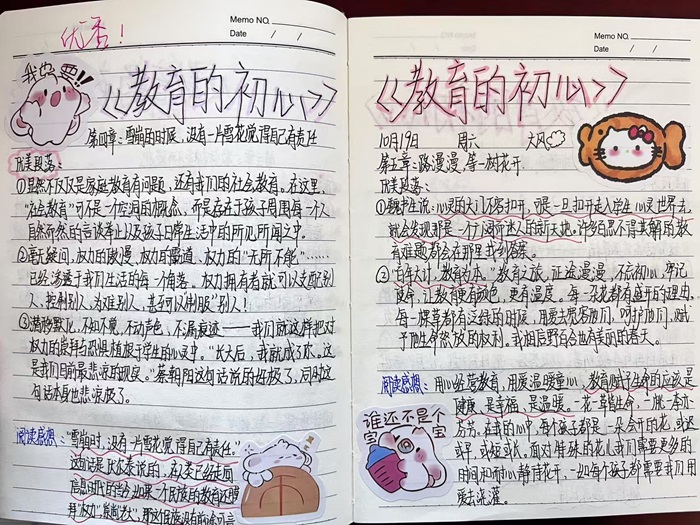 优秀！
Memo NO.
Date / /
我也要!!
《教育的初心》
第四章：雪崩的时候，没有一片雪花觉得自己有责任
优美段落：
①显然不仅仅是家庭教育有问题，还有我们的社会教育。在这里，
“社会教育”可不是一个空洞的概念，而是存在于孩子周围每一个人
自然而然的言谈举止以及孩子日常生活中的所见所闻之中。
②毫无疑问，权力的傲慢、权力的霸道、权力的“无所不能”……
已经渗透于我们生活的每一个角落。权力拥有者就可以支配别
人、控制别人、为难别人，甚至可以“制服”别人！
③潜移默化，不知不觉，不动声色，不漏痕迹——我们就这样把对
权力的崇拜与恐惧植根于学生的心灵中。“长大后，我就成了你。这
是我们目前最悲凉的现实。”蔡朝阳这句话说的好极了，同时这
句话本身也悲凉极了。
阅读感想：“雪崩时，没有一片雪花觉得自己有责任。”
这句话是伏尔泰说的，在人类已经走向
信息时代的当今，如果一个民族的教育还
Memo NO.
Date / /
《教育的初心》
10月19日 周六 大风
第五章：路漫漫，等一树花开
优美段落：
①魏书生说：心灵的大门不容易扣开，可是一旦扣开走入学生心灵世界去，
就会发现那是一个广阔而迷人的新天地，许许多多百思不得其解的教
育难题都会在那里找到答案。
②“百年大计，教育为本。”教育之旅，正途漫漫，不忘初心，牢记
使命，让教育更有颜色，更有温度。每一朵花都有盛开的理由，
每一棵草都有泛绿的时候，用爱去宽容他们，呵护他们，赋
予他生命绽放的权利。我相信野百合也有美丽的春天。
阅读感想：用心经营教育，用爱温暖童心，教育赋予生命的应该是
健康，是幸福，是温暖，一花一草皆生命，一枝一木亦
芬芳。在我的心中，每个孩子都是一朵含开的花，或迟
或早，或短或长。面对特殊的花儿我们需要更多的
时间和耐心静待花开，一如每个孩子都需要我们用
爱去浇灌。
谁还不是个
宝宝